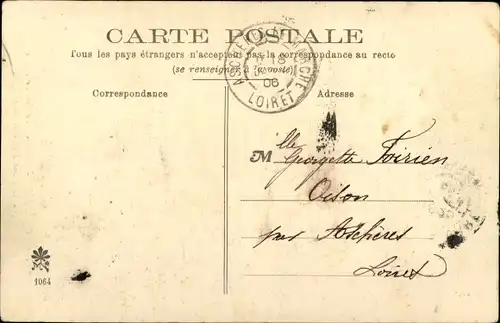 CARTE POSTALE
Tous les pays étrangers n'acceptent pas la correspondance au recto
(se renseigner à la poste)
ASCHÈRES-LE-MARCHÉ
18
06
LOIRET
Correspondance
Adresse
Mlle Georgette Poirien
Oison
par Aschères
Loiret
1064